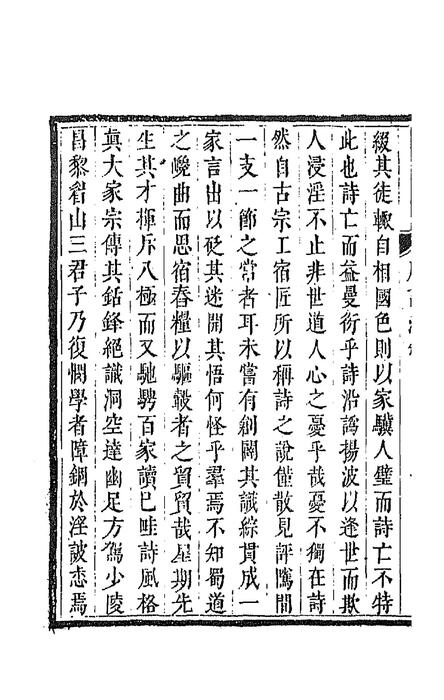 綴其徒輙自相國色則以家驥人璧而詩亡不特
此也詩亡而益曼衍乎詩沿譌揚波以逢世而欺
人浸淫不止非世道人心之憂乎哉憂不獨在詩
然自古宗工宿匠所以稱詩之說僅散見評隲間
一支一節之常者耳未嘗有創闢其識綜貫成一
家言出以砭其迷開其悟何怪乎羣焉不知蜀道
之巉曲而思宿舂糧以驅轂者之貿貿哉星期先
生其才揮斥八極而又馳騁百家讀已畦詩風格
眞大家宗傳其銛鋒絕識洞空達幽足方駕少陵
昌黎眉山三君子乃復憫學者障錮於淫詖恚焉